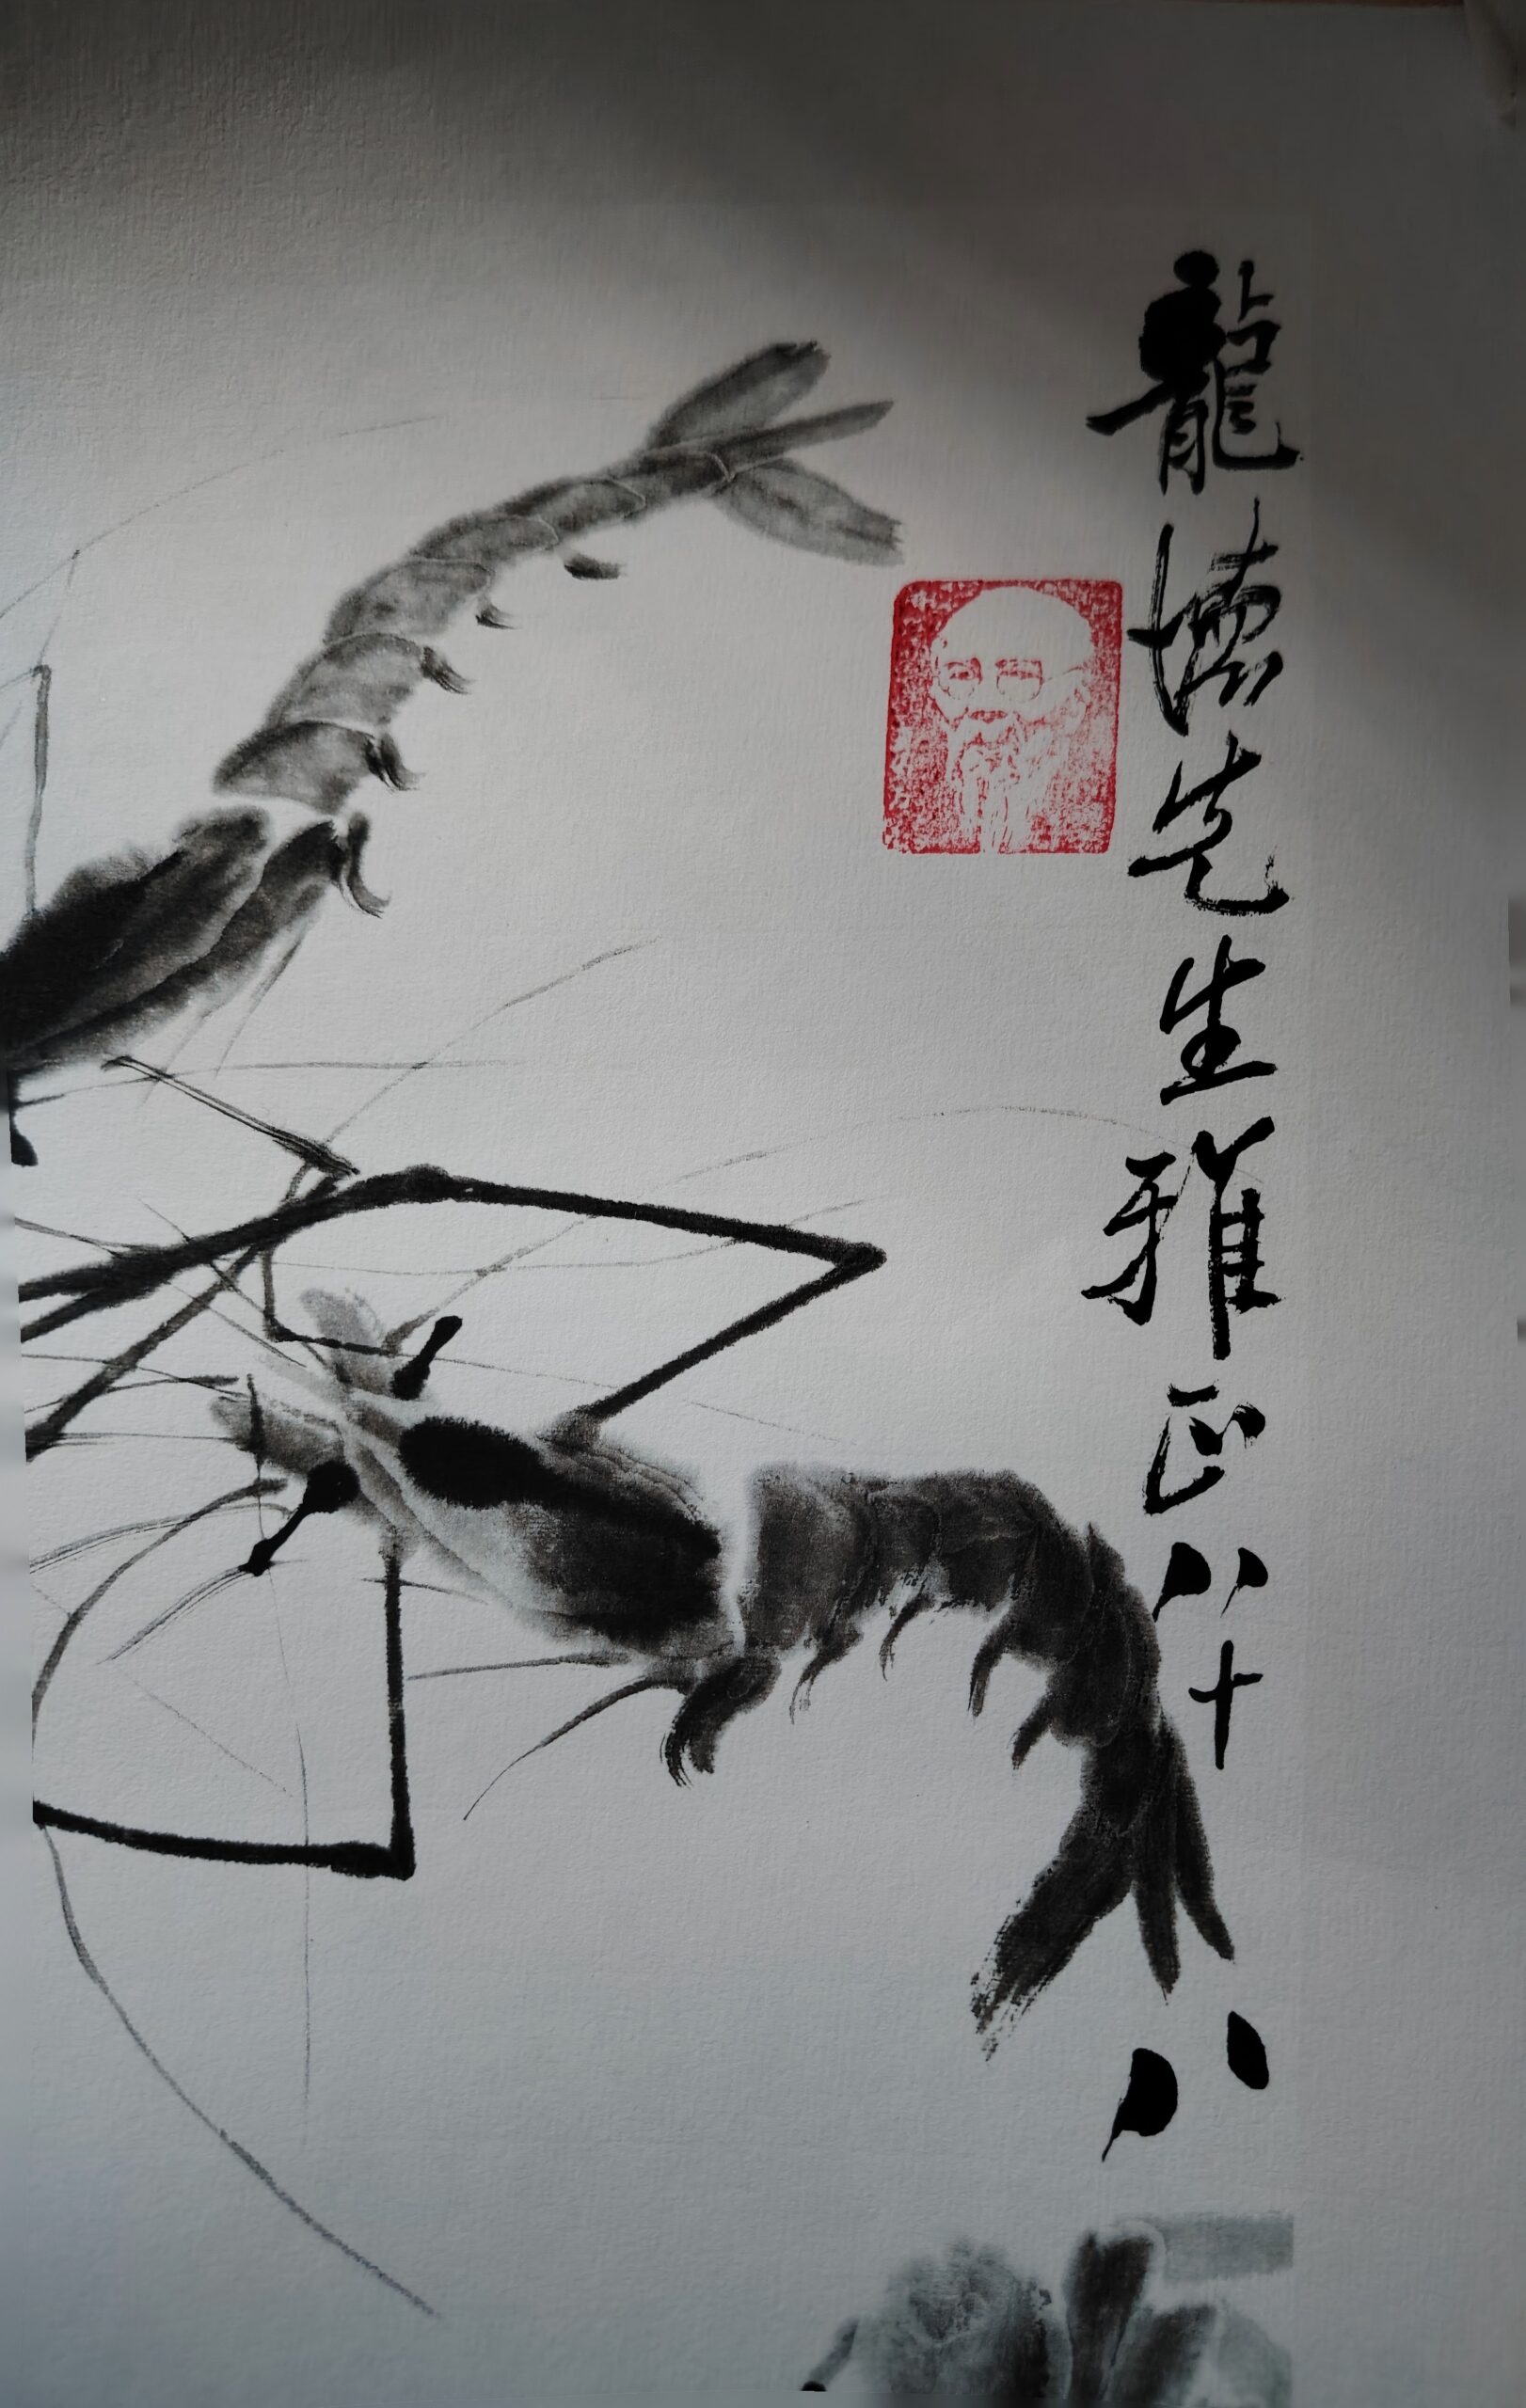 龍德先生雅正八十八